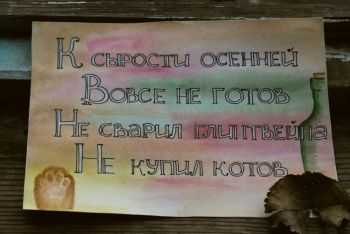 К сырости осенней
Вовсе не готов
Не сварил глинтвейна
Не купил котов